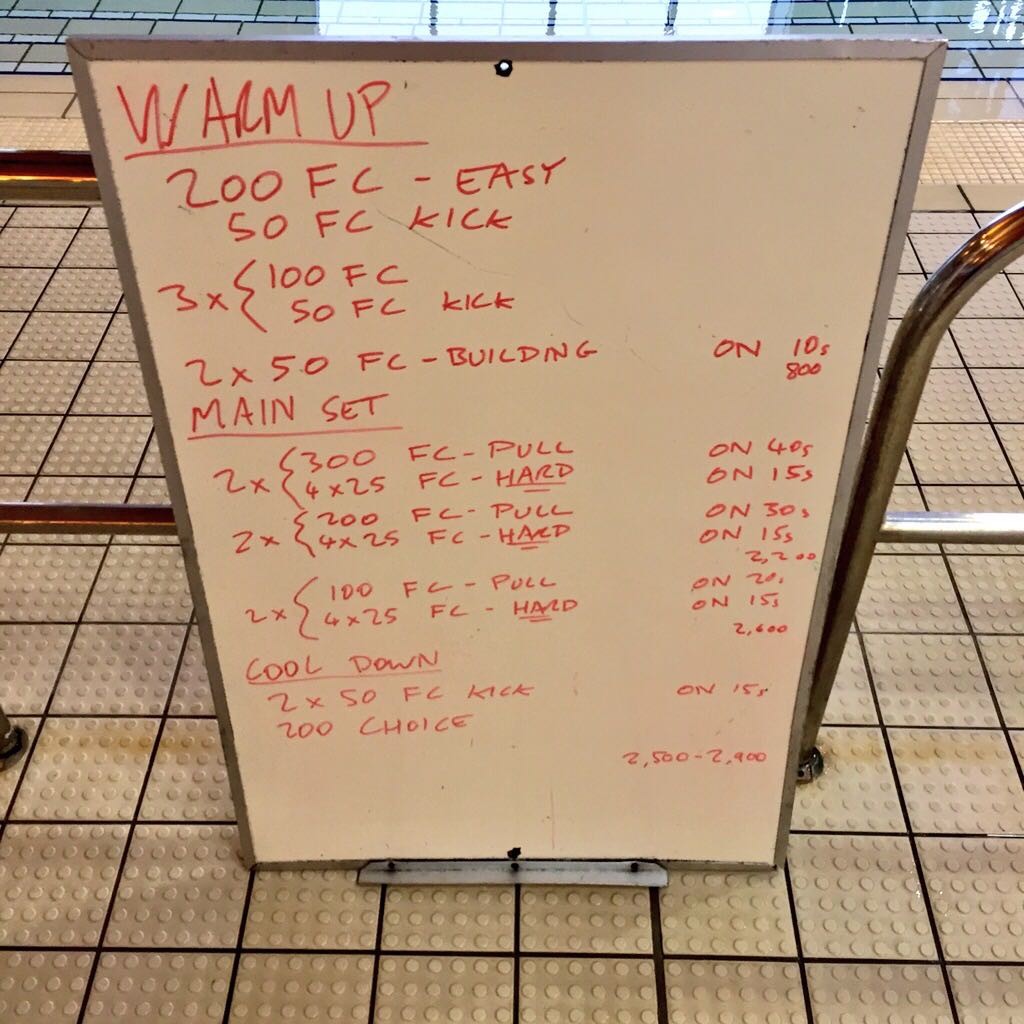 WARM UP
200 FC - EASY
50 FC KICK
3 x { 100 FC
50 FC KICK
2 x 50 FC - BUILDING ON 10s
800
MAIN SET
2 x { 300 FC - PULL ON 40s
4 x 25 FC - HARD ON 15s
2 x { 200 FC - PULL ON 30s
4 x 25 FC - HARD ON 15s
2,200
2 x { 100 FC - PULL ON 20s
4 x 25 FC - HARD ON 15s
2,600
COOL DOWN
2 x 50 FC KICK ON 15s
200 CHOICE
2,500 - 2,900